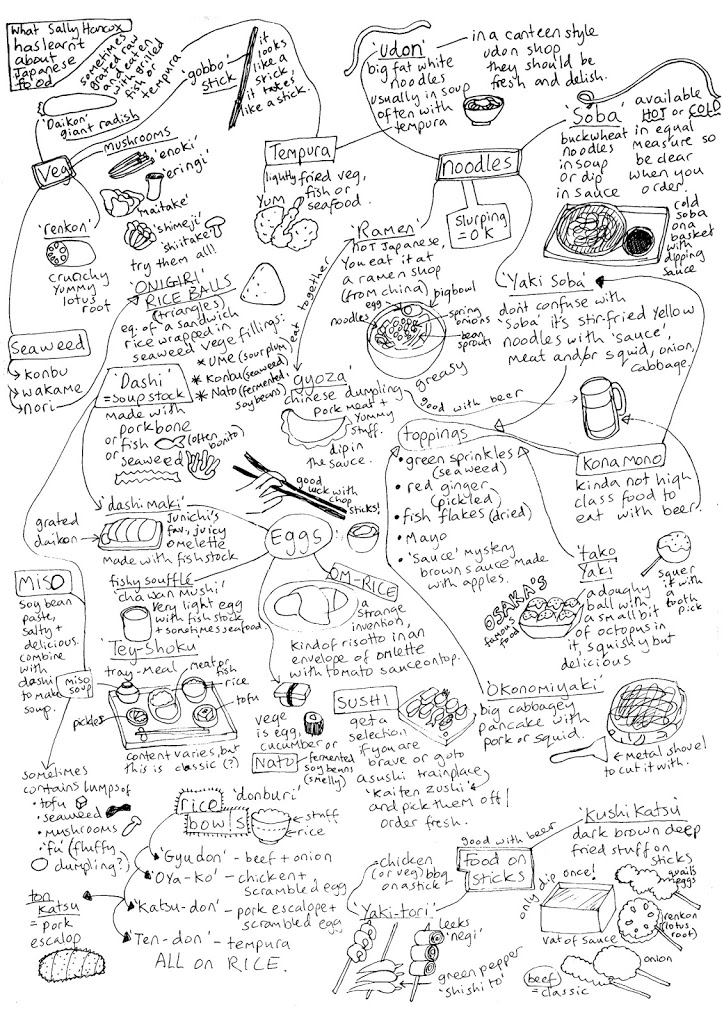 What Sally Hancox
has learnt
about
Japanese
food
sometimes
grated raw
and eaten
with grilled
fish or
tempura
'Daikon'
giant radish
'gobbo'
stick
it
looks
like a
stick,
it tastes
like a stick.
Veg
mushrooms
'enoki'
'eringi'
'maitake'
'shimeji'
shiitake
try them all!
'renkon'
crunchy
yummy
lotus
root
Seaweed
konbu
wakame
nori
'udon'
big fat white
noodles
usually in soup
often with
tempura
in a canteen style
udon shop
they should be
fresh and delish.
Tempura
lightly fried veg,
fish or
seafood.
YUM
noodles
slurping
= OK
'Soba'
buckwheat
noodles
in soup
or dip
in sauce
available
HOT or COLD
in equal
measure so
be clear
when you
order.
cold
soba
on a
basket
with
dipping
sauce
'Ramen'
HOT Japanese,
You eat it at
a ramen shop
(from china)
big bowl
egg
noodles
spring
onions
bean
sprouts
eat together
'Yaki Soba'
dont confuse with
'Soba' it's stir-fried yellow
noodles with 'sauce',
meat and/or squid, onion,
cabbage.
'ONIGIRI'
RICE BALLS
(triangles)
eq. of a sandwich
rice wrapped in
seaweed vege fillings:
* UME (sour plum)
* Konbu (seaweed)
* Nato (fermented,
soy beans)
'Dashi'
= soup stock
made with
pork bone
or fish (often
bonito)
or seaweed
'gyoza'
chinese dumpling
pork meat +
yummy
stuff.
dip in
the sauce.
greasy
good with beer
good
luck with
chop
sticks!
toppings
• green sprinkles
(seaweed)
• red ginger
(pickled)
• fish flakes (dried)
• Mayo
• 'Sauce' mystery
brown sauce made
with apples.
Kona mono
kinda not high
class food to
eat with beer
'dashimaki'
grated
daikon
Junichi's
fav, juicy
omelette
made with fish stock
Eggs
fishy soufflé
'chawan mushi'
very light egg
with fish stock
+ sometimes seafood
OM-RICE
a
strange
invention,
kind of risotto in an
envelope of omlette
with tomato sauce on top.
'tako
Yaki'
a doughy
ball with
a small bit
of octopus in
it, squishy but
delicious
OSAKA'S
famous
food
squer
it with
a
tooth
pick
MISO
soy bean
paste,
salty +
delicious.
combine
with
dashi
to make
soup.
miso
soup
sometimes
contains lumps of
• tofu
• seaweed
• mushrooms
• 'fu' (fluffy
dumpling?)
'Tey-Shoku'
tray-meal
meat or
fish
rice
tofu
pickles
content varies, but
this is classic (?)
vege
is egg,
cucumber or
NATO
fermented
soy beans
(smelly)
SUSHI
get a
selection
if you are
brave or go to
a sushi train place
'Kaiten zushi'
and pick them off /
order fresh.
'Okonomiyaki'
big cabbagey
pancake with
pork or squid.
metal shovel
to cut it with.
rice
bowls
'donburi'
stuff
rice
'Gyudon' - beef + onion
'Oya-ko' - chicken +
scrambled egg
'Katsu-don' - pork escalope +
scrambled egg
'Ten-don' - tempura
ALL on RICE.
ton
Katsu
= pork
escalop
good with beer
food on
sticks
chicken
(or veg) bbq
on a stick
'Yaki-tori'
leeks
'negi'
green pepper
'shishito'
'Kushi Katsu'
dark brown deep
fried stuff on
sticks
only dip once!
vat of sauce
quails
eggs
renkon
(lotus
root)
onion
beef
= classic